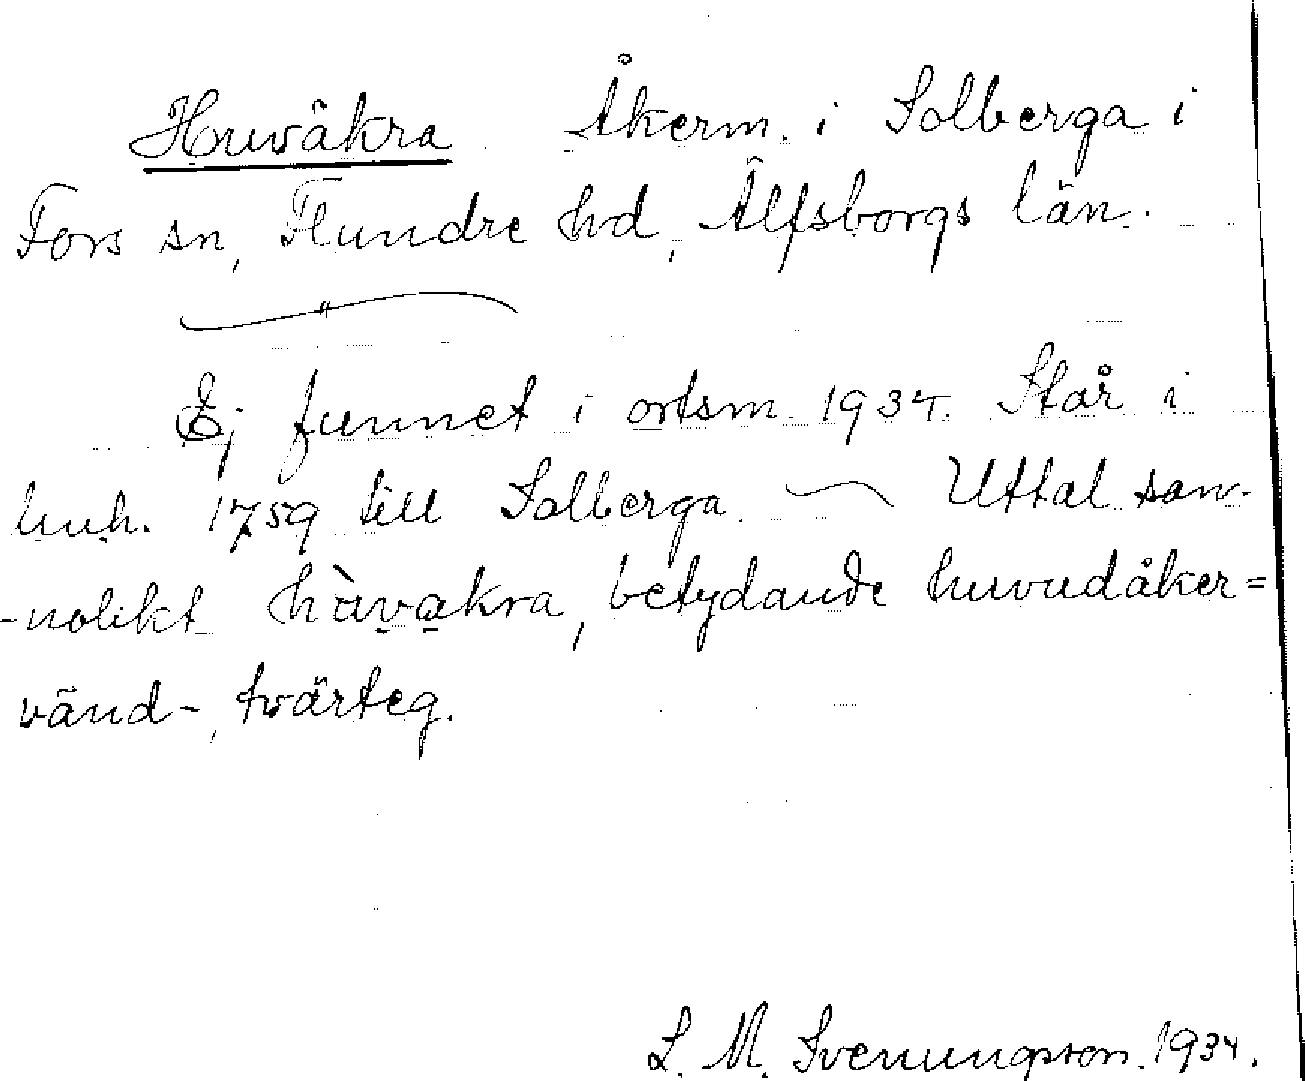 Huvåkra Åkerm. i Solberga i
Fors sn, Flundre hd, Älfsborgs län.
Ej funnet i ortsm. 1934. Står i
huh. 1759 till Solberga. — Uttal san-
-nolikt hùvakra, betydande huvudåker=
vänd-, tvärteg.
L. M. Svenungsson. 1934.